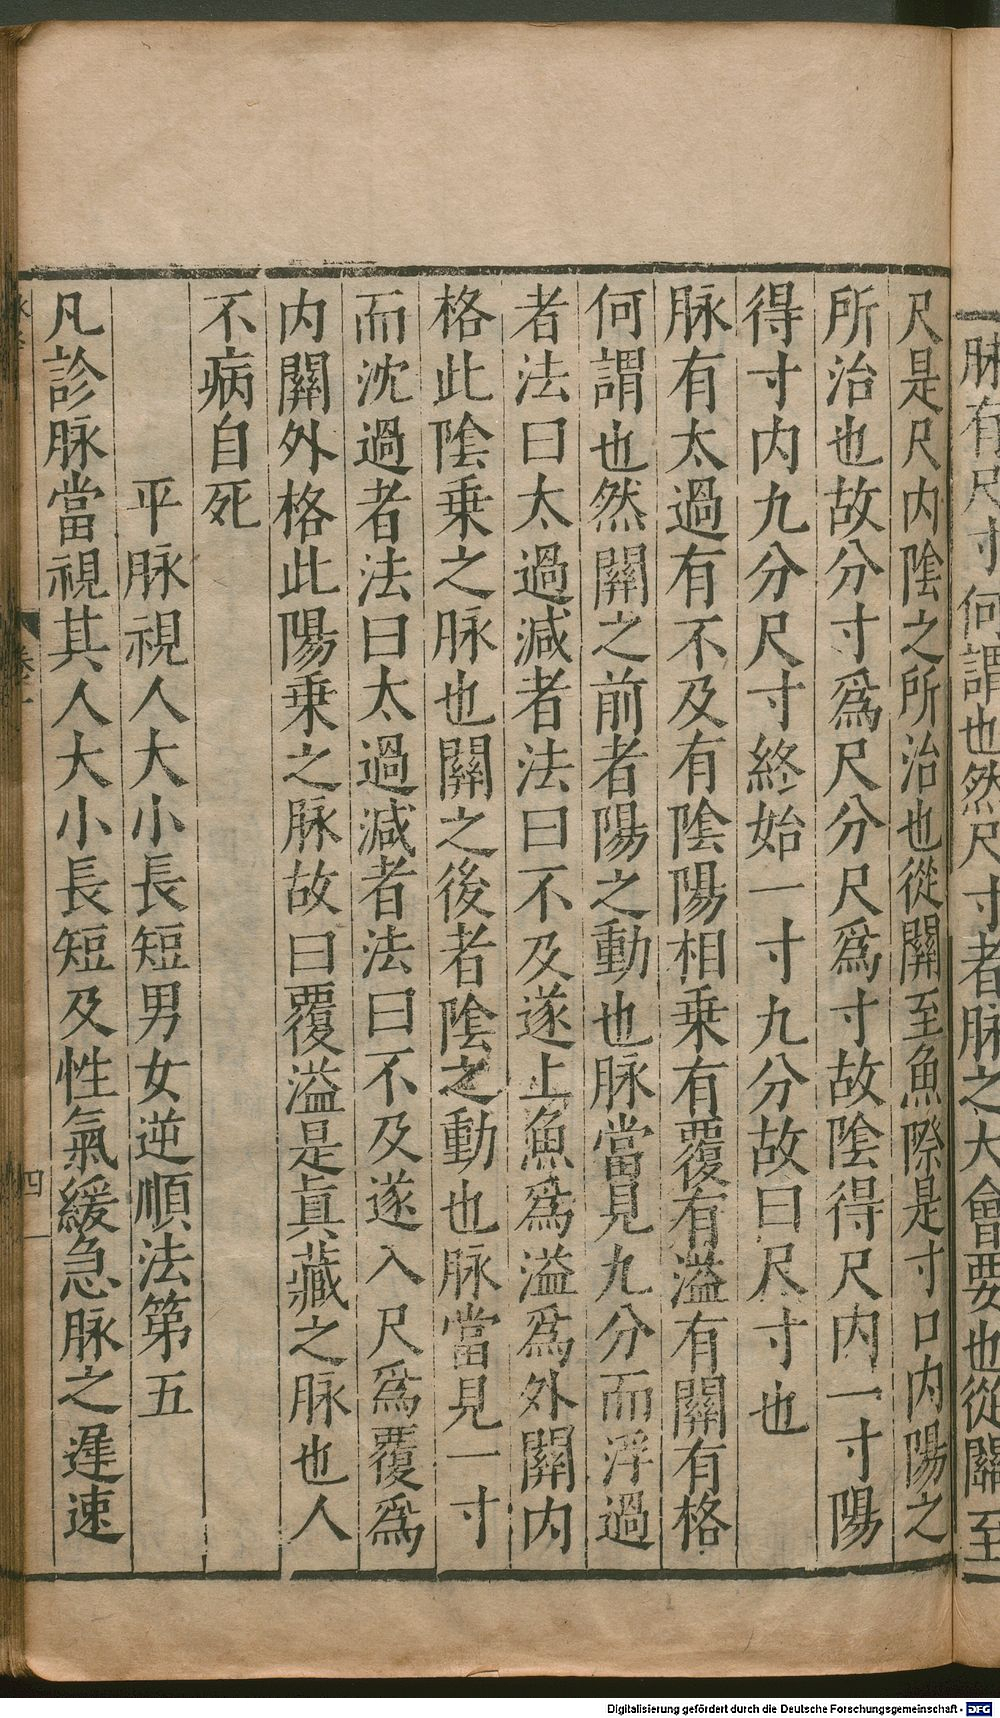 脉有尺寸何謂也然尺寸者脉之大會要也從關至
尺是尺内陰之所治也從關至魚際是寸口内陽之
所治也故分寸爲尺分尺爲寸故陰得尺内一寸陽
得寸内九分尺寸終始一寸九分故曰尺寸也
脉有太過有不及有陰陽相乗有覆有溢有關有格
何謂也然關之前者陽之動也脉當見九分而浮過
者法曰太過減者法曰不及遂上魚爲溢爲外關内
格此陰乗之脉也關之後者陰之動也脉當見一寸
而沈過者法曰太過減者法曰不及遂入尺爲覆爲
内關外格此陽乗之脉故曰覆溢是真藏之脉也人
不病自死
平脉視人大小長短男女逆順法第五
凡診脉當視其人大小長短及性氣緩急脉之遲速
卷一
四
Digitalisierung gefördert durch die Deutsche Forschungsgemeinschaft - DFG